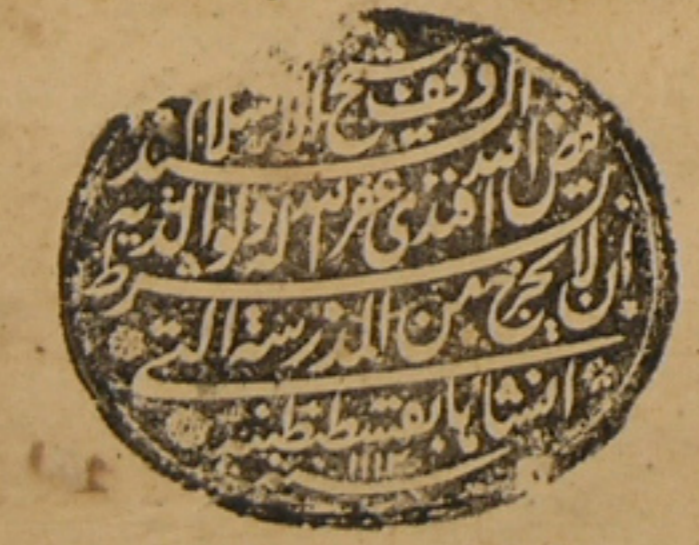 وقف شيخ الاسلام السيد
فيض الله افندى غفر الله له ولوالديه
بشرط ان لا يخرج من المدرسة التى
انشاها بقسطنطينيه
١١١٢